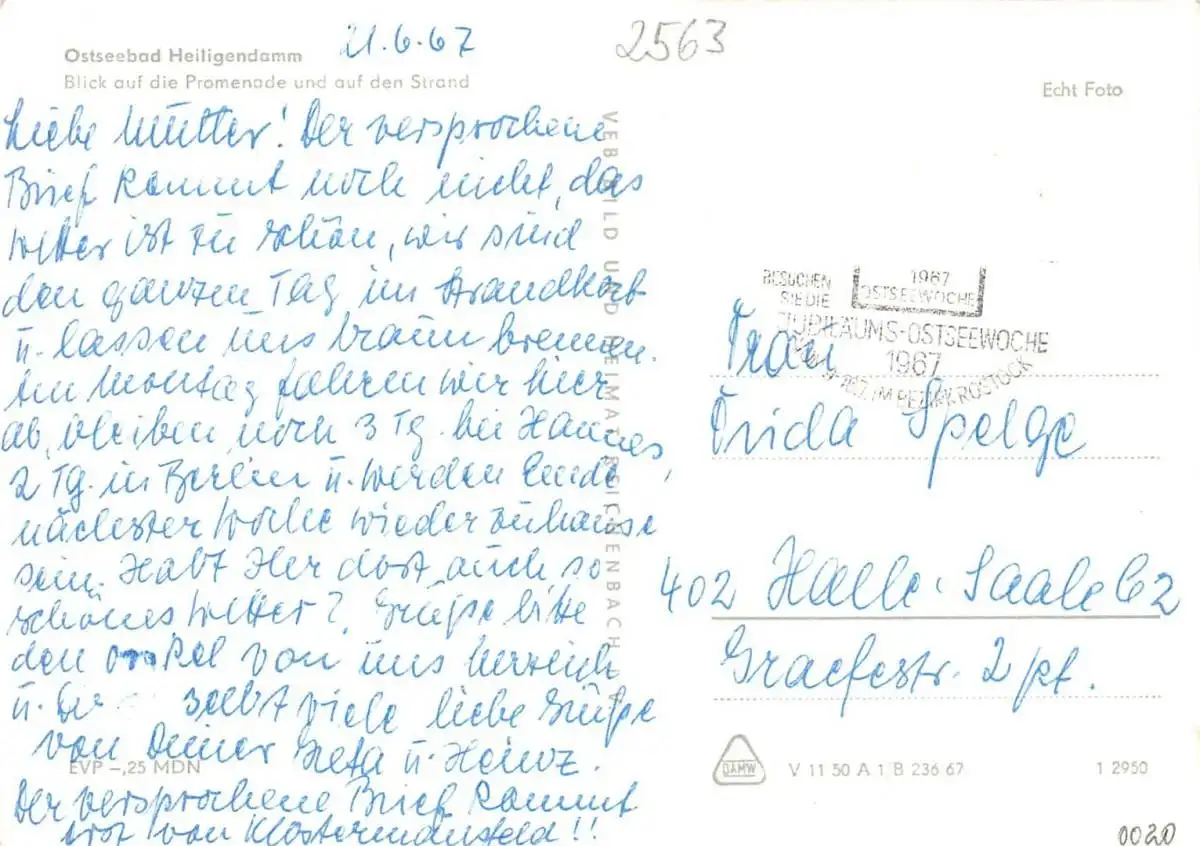 Ostseebad Heiligendamm
Blick auf die Promenade und auf den Strand
21.6.67
2563
Echt Foto
Liebe Mutter! Der versprochene
Brief kommt noch nicht, das
Wetter ist zu schön, wir sind
den ganzen Tag im Strandkorb
u. lassen uns braun brennen.
Am Montag fahren wir hier
ab, bleiben noch 3 Tg. bei Hannes,
2 Tg. in Berlin u. werden Ende
nächster Woche wieder zuhause
sein. Habt Ihr dort auch so
schönes Wetter? Grüße bitte
den Onkel von uns herzlich
u. Dir selbst viele liebe Grüße
von Deiner Greta u. Heinz.
Der versprochene Brief kommt
erst von Klostermansfeld!!
EVP –,25 MDN
VEB BILD UND HEIMAT REICHENBACH
BESUCHEN
SIE DIE
1967
OSTSEEWOCHE
JUBILÄUMS-OSTSEEWOCHE
1967
IM BEZIRK ROSTOCK
Frau
Frida Spelge
402 Halle-Saale C2
Graefestr. 2 pt.
DAMW
V 11 50 A 1 B 236 67
1 2950
0020